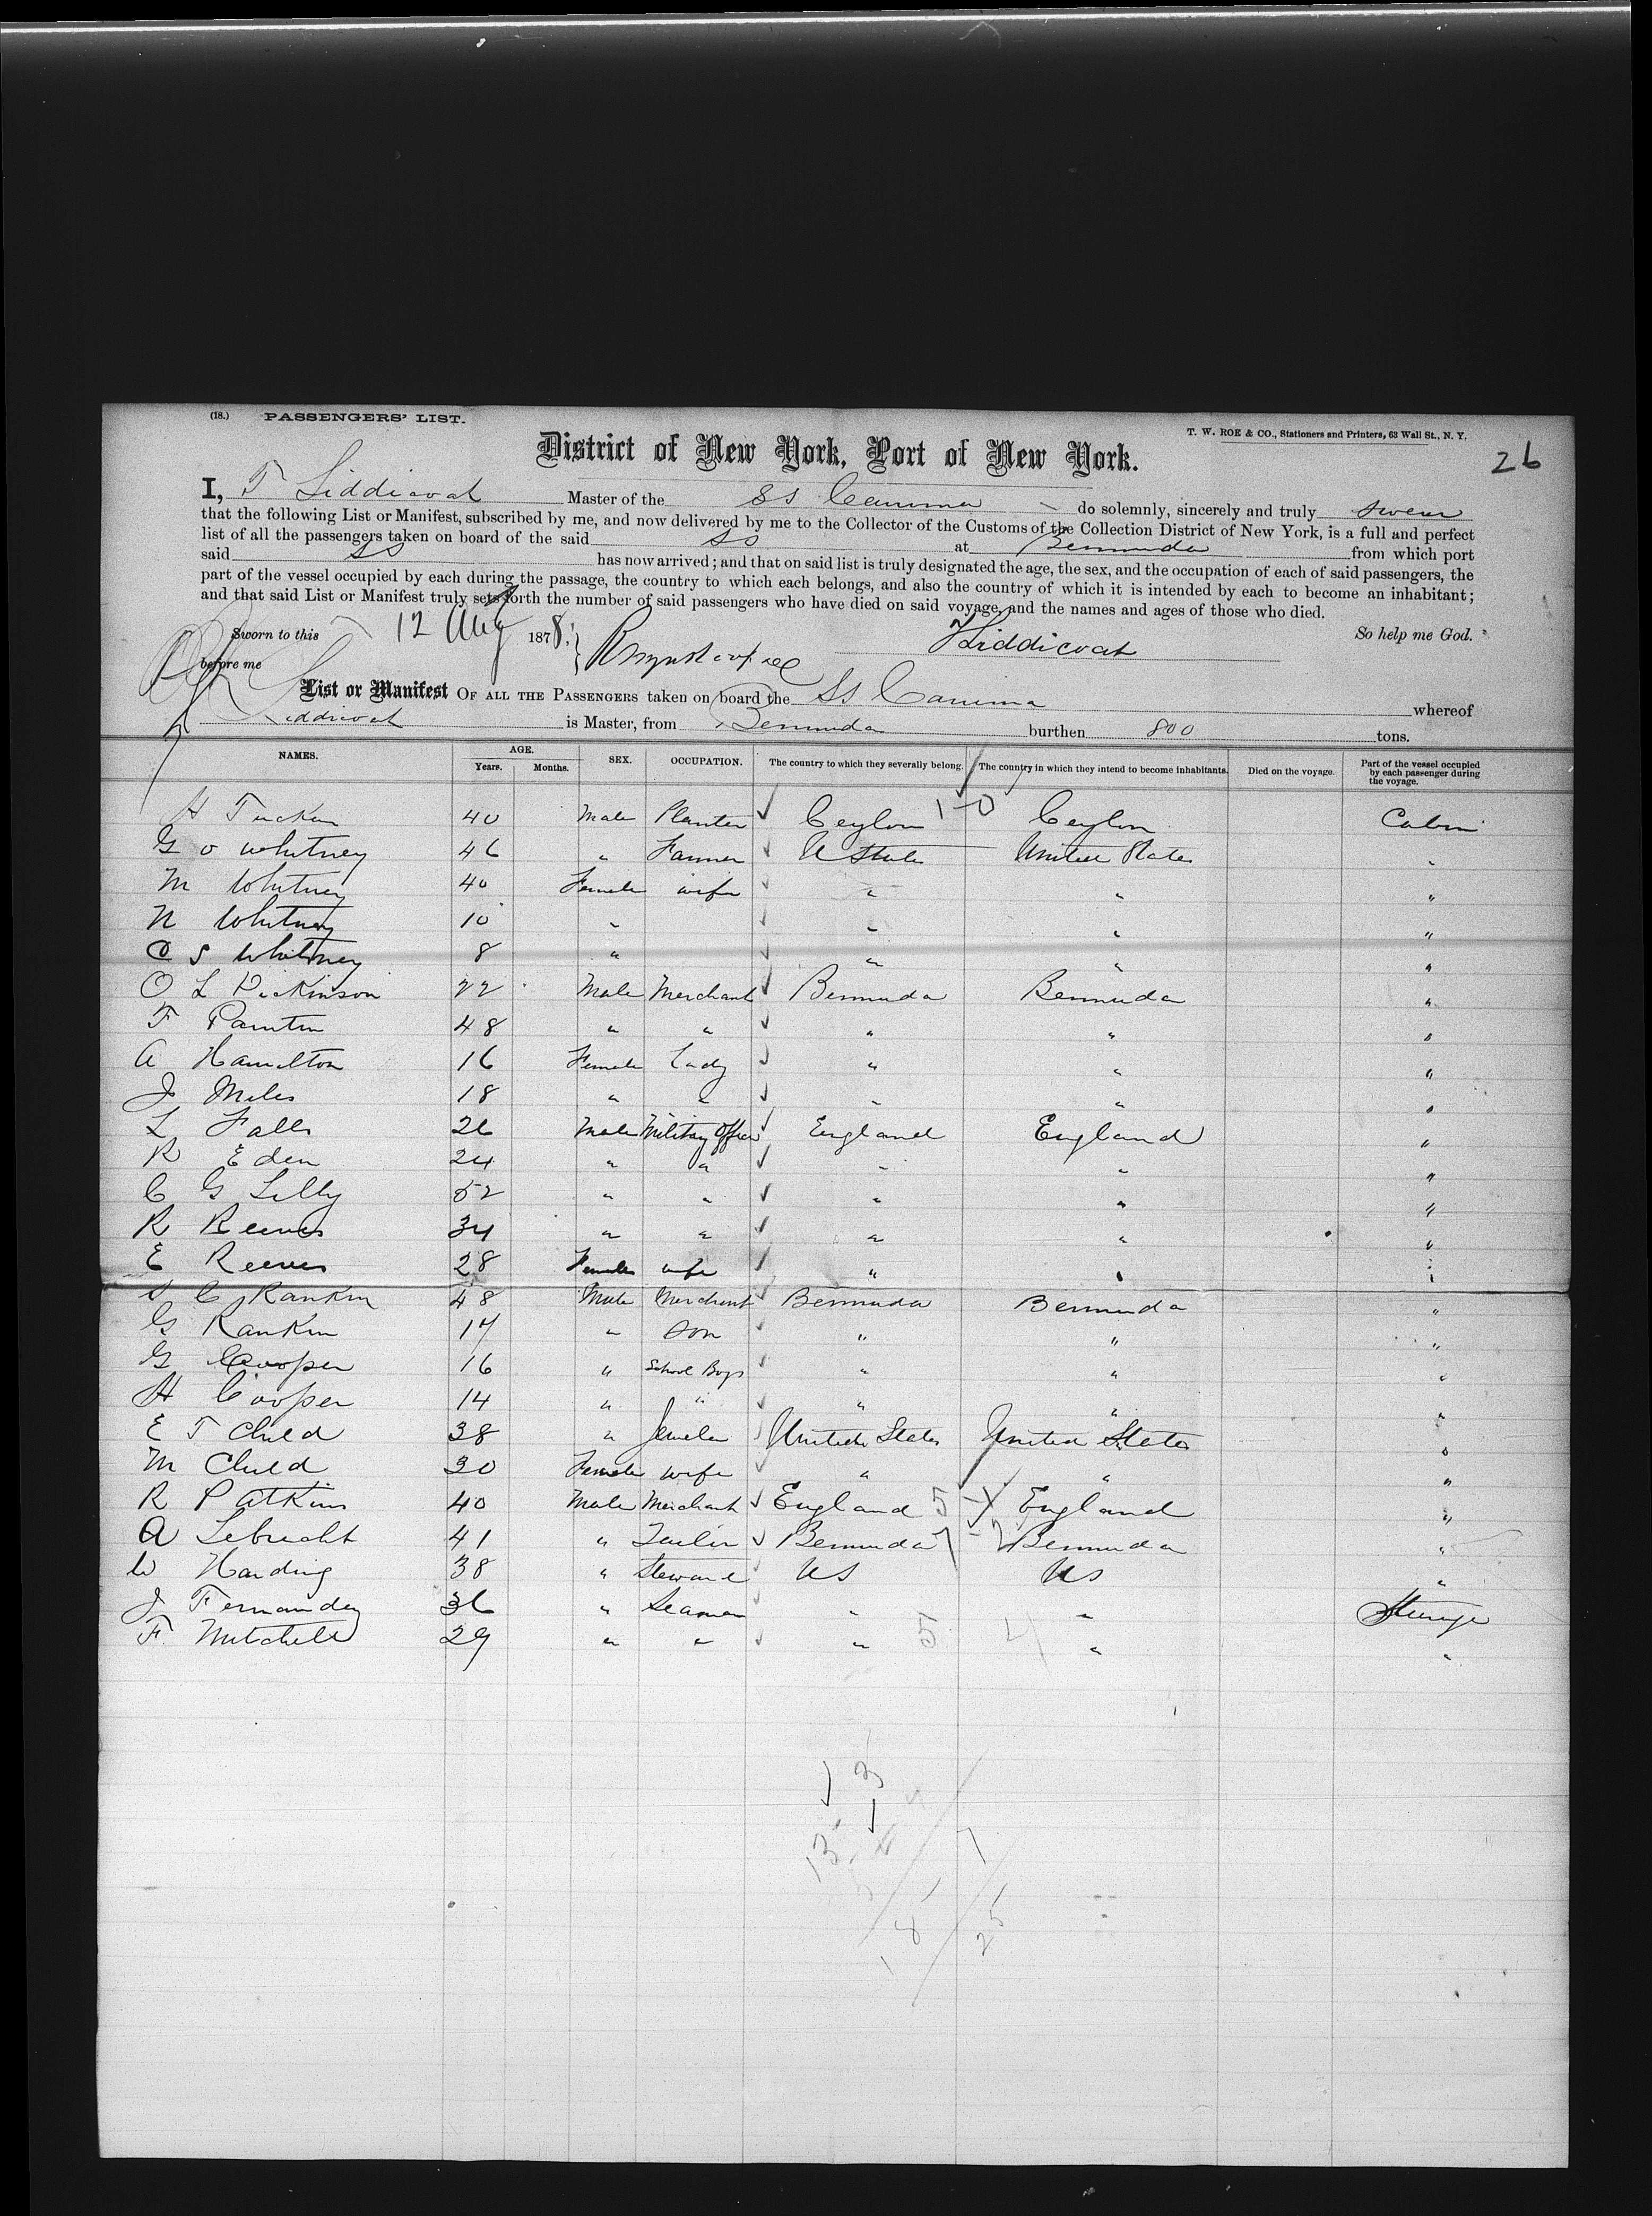 (18.) PASSENGERS' LIST.
T. W. ROE & CO., Stationers and Printers, 63 Wall St., N. Y.
District of New York, Port of New York.
26
I, T Liddicoat Master of the SS Canima do solemnly, sincerely and truly swear
that the following List or Manifest, subscribed by me, and now delivered by me to the Collector of the Customs of the Collection District of New York, is a full and perfect
list of all the passengers taken on board of the said SS at Bermuda from which port
said SS has now arrived; and that on said list is truly designated the age, the sex, and the occupation of each of said passengers, the
part of the vessel occupied by each during the passage, the country to which each belongs, and also the country of which it is intended by each to become an inhabitant;
and that said List or Manifest truly sets forth the number of said passengers who have died on said voyage, and the names and ages of those who died.
Sworn to this 12 Aug 1878. Liddicoat So help me God.
before me
List or Manifest OF ALL THE PASSENGERS taken on board the SS Canima whereof
Liddicoat is Master, from Bermuda burthen 800 tons.
NAMES. AGE. Years. Months. SEX. OCCUPATION. The country to which they severally belong. The country in which they intend to become inhabitants. Died on the voyage. Part of the vessel occupied by each passenger during the voyage.
H Tucker 40 Male Planter Ceylon 1-0 Ceylon Cabin
G O Whitney 46 " Farmer U States United States "
M Whitney 40 Female wife " " "
N Whitney 10 " " " "
C S Whitney 8 " " " "
O L Dickinson 22 Male Merchant Bermuda Bermuda "
F 48 " " " " "
A Hamilton 16 Female Lady " " "
J Miles 18 " " " " "
L Falls 26 Male Military Officer England England "
R Eden 24 " " " " "
C G Lilly 52 " " " " "
R Reeves 34 " " " " "
E Reeves 28 Female wife " " "
C Rankin 48 Male Merchant Bermuda Bermuda "
G Rankin 17 " Son " " "
G Cooper 16 " School Boys " " "
H Cooper 14 " " " " "
E T Child 38 " Jeweler United States United States "
M Child 30 Female wife " " "
R P Atkins 40 Male Merchant England 5 England "
A Lebrecht 41 " Tailor Bermuda 7-2 Bermuda "
W Harding 38 " Steward US US "
J Fernandez 36 " Seaman " " Steerage
F Mitchell 29 " " " 5 4 " "
13
18
25